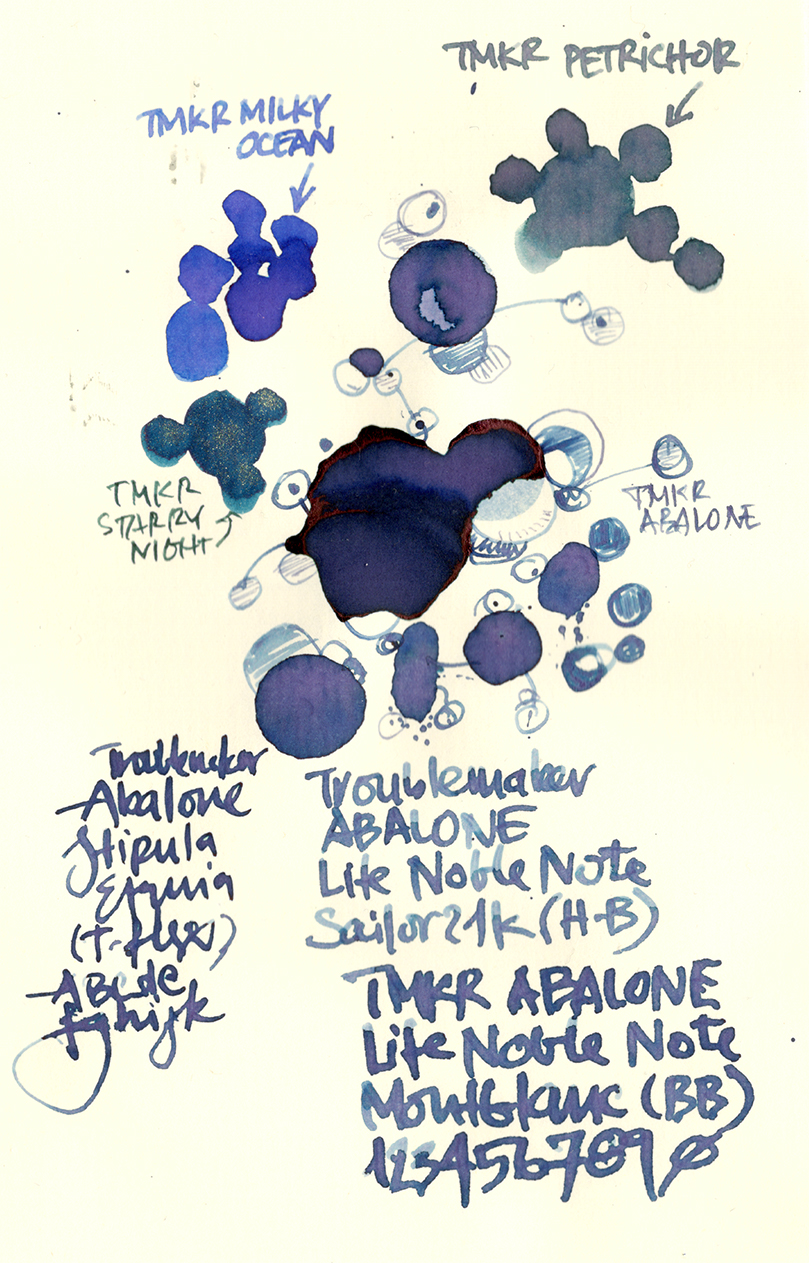 TMKR PETRICHOR
TMKR MILKY
OCEAN
TMKR
STARRY
NIGHT
TMKR
ABALONE
Troublemaker
Abalone
Stipula
Etruria
(T-flex)
ABCde
fghijk
Troublemaker
ABALONE
Life Noble Note
Sailor 21k (H-B)
TMKR ABALONE
Life Noble Note
Montblanc (BB)
1234567890